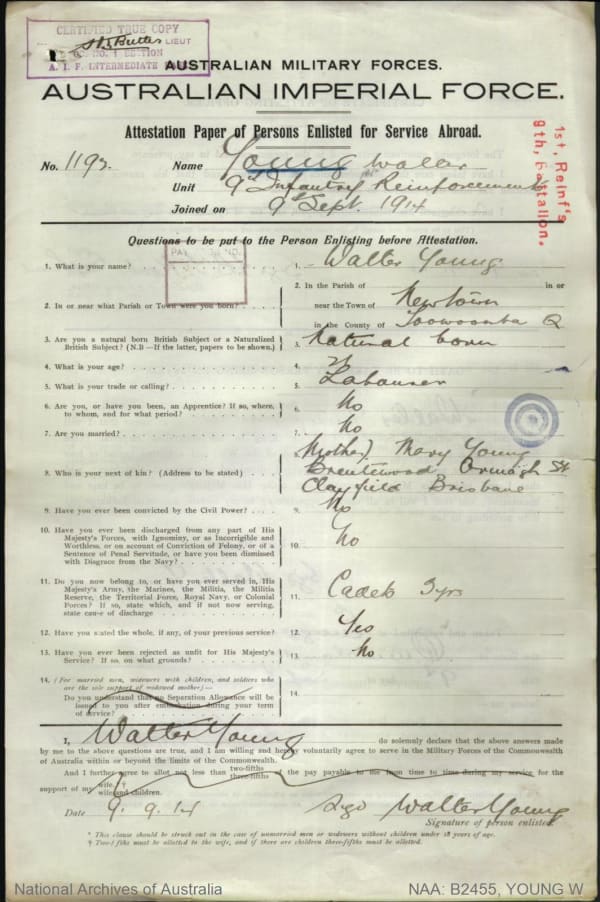 CERTIFIED TRUE COPY
LIEUT
A. I. F. INTERMEDIATE
AUSTRALIAN MILITARY FORCES.
AUSTRALIAN IMPERIAL FORCE.
Attestation Paper of Persons Enlisted for Service Abroad.
1st, Reinf's
9th, Battalion.
No. Name Young Walter
Unit 9th Infantry Reinforcements
Joined on 9 Sept. 1914
Questions to be put to the Person Enlisting before Attestation.
1. What is your name? 1. Walter Young
2. In or near what Parish or Town were you born? 2. In the Parish of in or
near the Town of Newtown
in the County of Toowoomba Q
3. Are you a natural born British Subject or a Naturalized British Subject? (N.B—If the latter, papers to be shown.) 3. Natural born
4. What is your age? 4.
5. What is your trade or calling? 5. Labourer
6. Are you, or have you been, an Apprentice? If so, where, to whom, and for what period? 6. No
7. Are you married? 7. No
8. Who is your next of kin? (Address to be stated) 8. (Mother) Mary Young
Brentwood Armagh St
Clayfield Brisbane
9. Have you ever been convicted by the Civil Power? 9. No
10. Have you ever been discharged from any part of His Majesty's Forces, with Ignominy, or as Incorrigible and Worthless, or on account of Conviction of Felony, or of a Sentence of Penal Servitude, or have you been dismissed with Disgrace from the Navy? 10. No
11. Do you now belong to, or have you ever served in, His Majesty's Army, the Marines, the Militia, the Militia Reserve, the Territorial Force, Royal Navy, or Colonial Forces? If so, state which, and if not now serving, state cause of discharge 11. Cadets 3 yrs
12. Have you stated the whole, if any, of your previous service? 12. Yes
13. Have you ever been rejected as unfit for His Majesty's Service? If so, on what grounds? 13. No
14. (For married men, widowers with children, and soldiers who are the sole support of widowed mother)—
Do you understand that no Separation Allowance will be issued to you after embarkation during your term of service? 14.
I, Walter Young do solemnly declare that the above answers made
by me to the above questions are true, and I am willing and hereby voluntarily agree to serve in the Military Forces of the Commonwealth
of Australia within or beyond the limits of the Commonwealth.
And I further agree to allot not less than two-fifths three-fifths of the pay payable to me from time to time during my service for the
support of my wife. † wife and children.
Date 9. 9. 14 Sgd Walter Young
Signature of person enlisted.
* This clause should be struck out in the case of unmarried men or widowers without children under 18 years of age.
† Two-fifths must be allotted to the wife, and if there are children three-fifths must be allotted.
National Archives of Australia NAA: B2455, YOUNG W